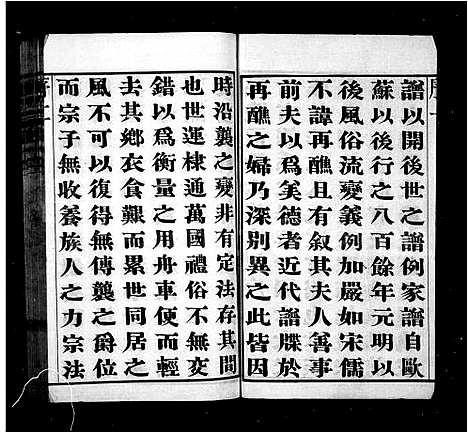 序一
譜以開後世之譜例家譜自歐
蘇以後行之八百餘年元明以
後風俗流變義例加嚴如宋儒
不諱再醮且有叙其夫人善事
前夫以爲美德者近代譜牒於
再醮之婦乃深別異之此皆因
時沿襲之變非有定法存其間
也世運棣通萬國禮俗不無交
錯以爲衡量之用舟車便而輕
去其鄉衣食艱而累世同居之
風不可以復得無傳襲之爵位
而宗子無收養族人之力宗法